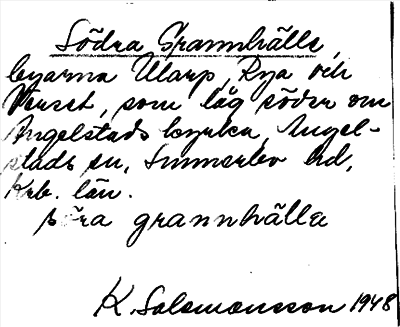 Södra Grannhälle,
byarna Ularp, Rya och
Yxset, som låg söder om
Angelstads kyrka, Angel-
stads sn, Sunnerbo hd,
Krb. län.
söra grannhälla
K. Salomonsson 1948